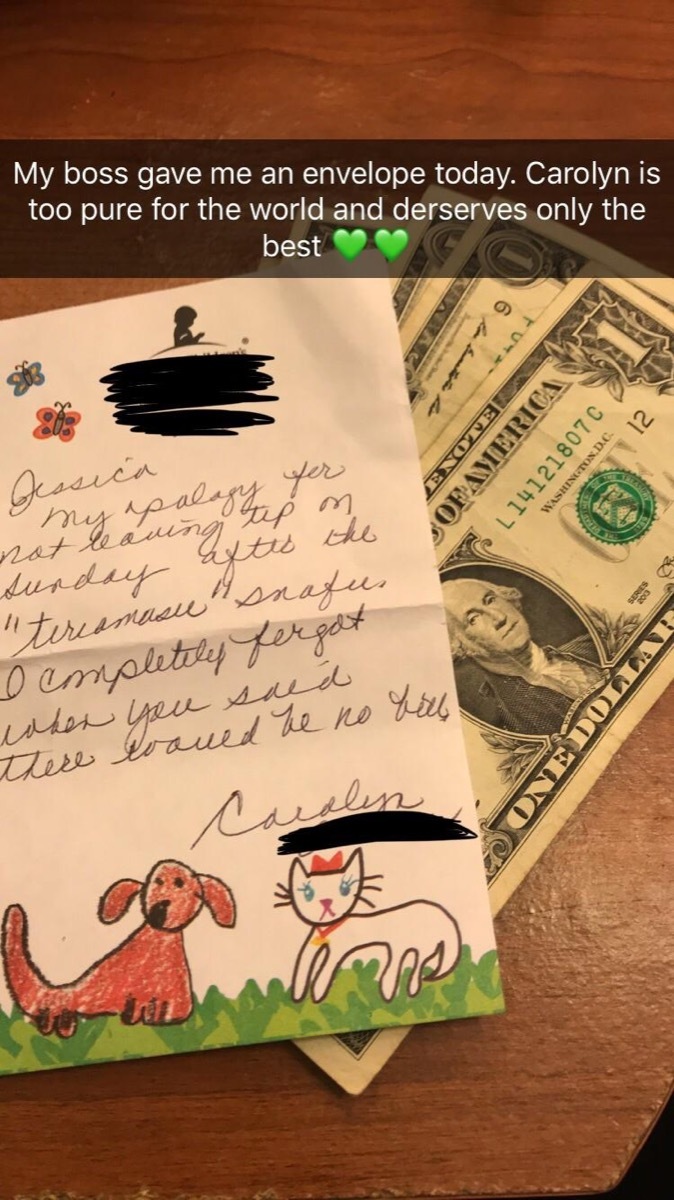 My boss gave me an envelope today. Carolyn is
too pure for the world and derserves only the
best 💚💚
Jessica
my apology for
not leaving tip on
Sunday after the
"tiriamasu" snafu.
I completely forgot
when you said
there would be no bill
Carolyn
1
9
ONE
OF AMERICA
L14121807C
WASHINGTON, D.C.
12
SERIES
2013
ONE DOLLAR